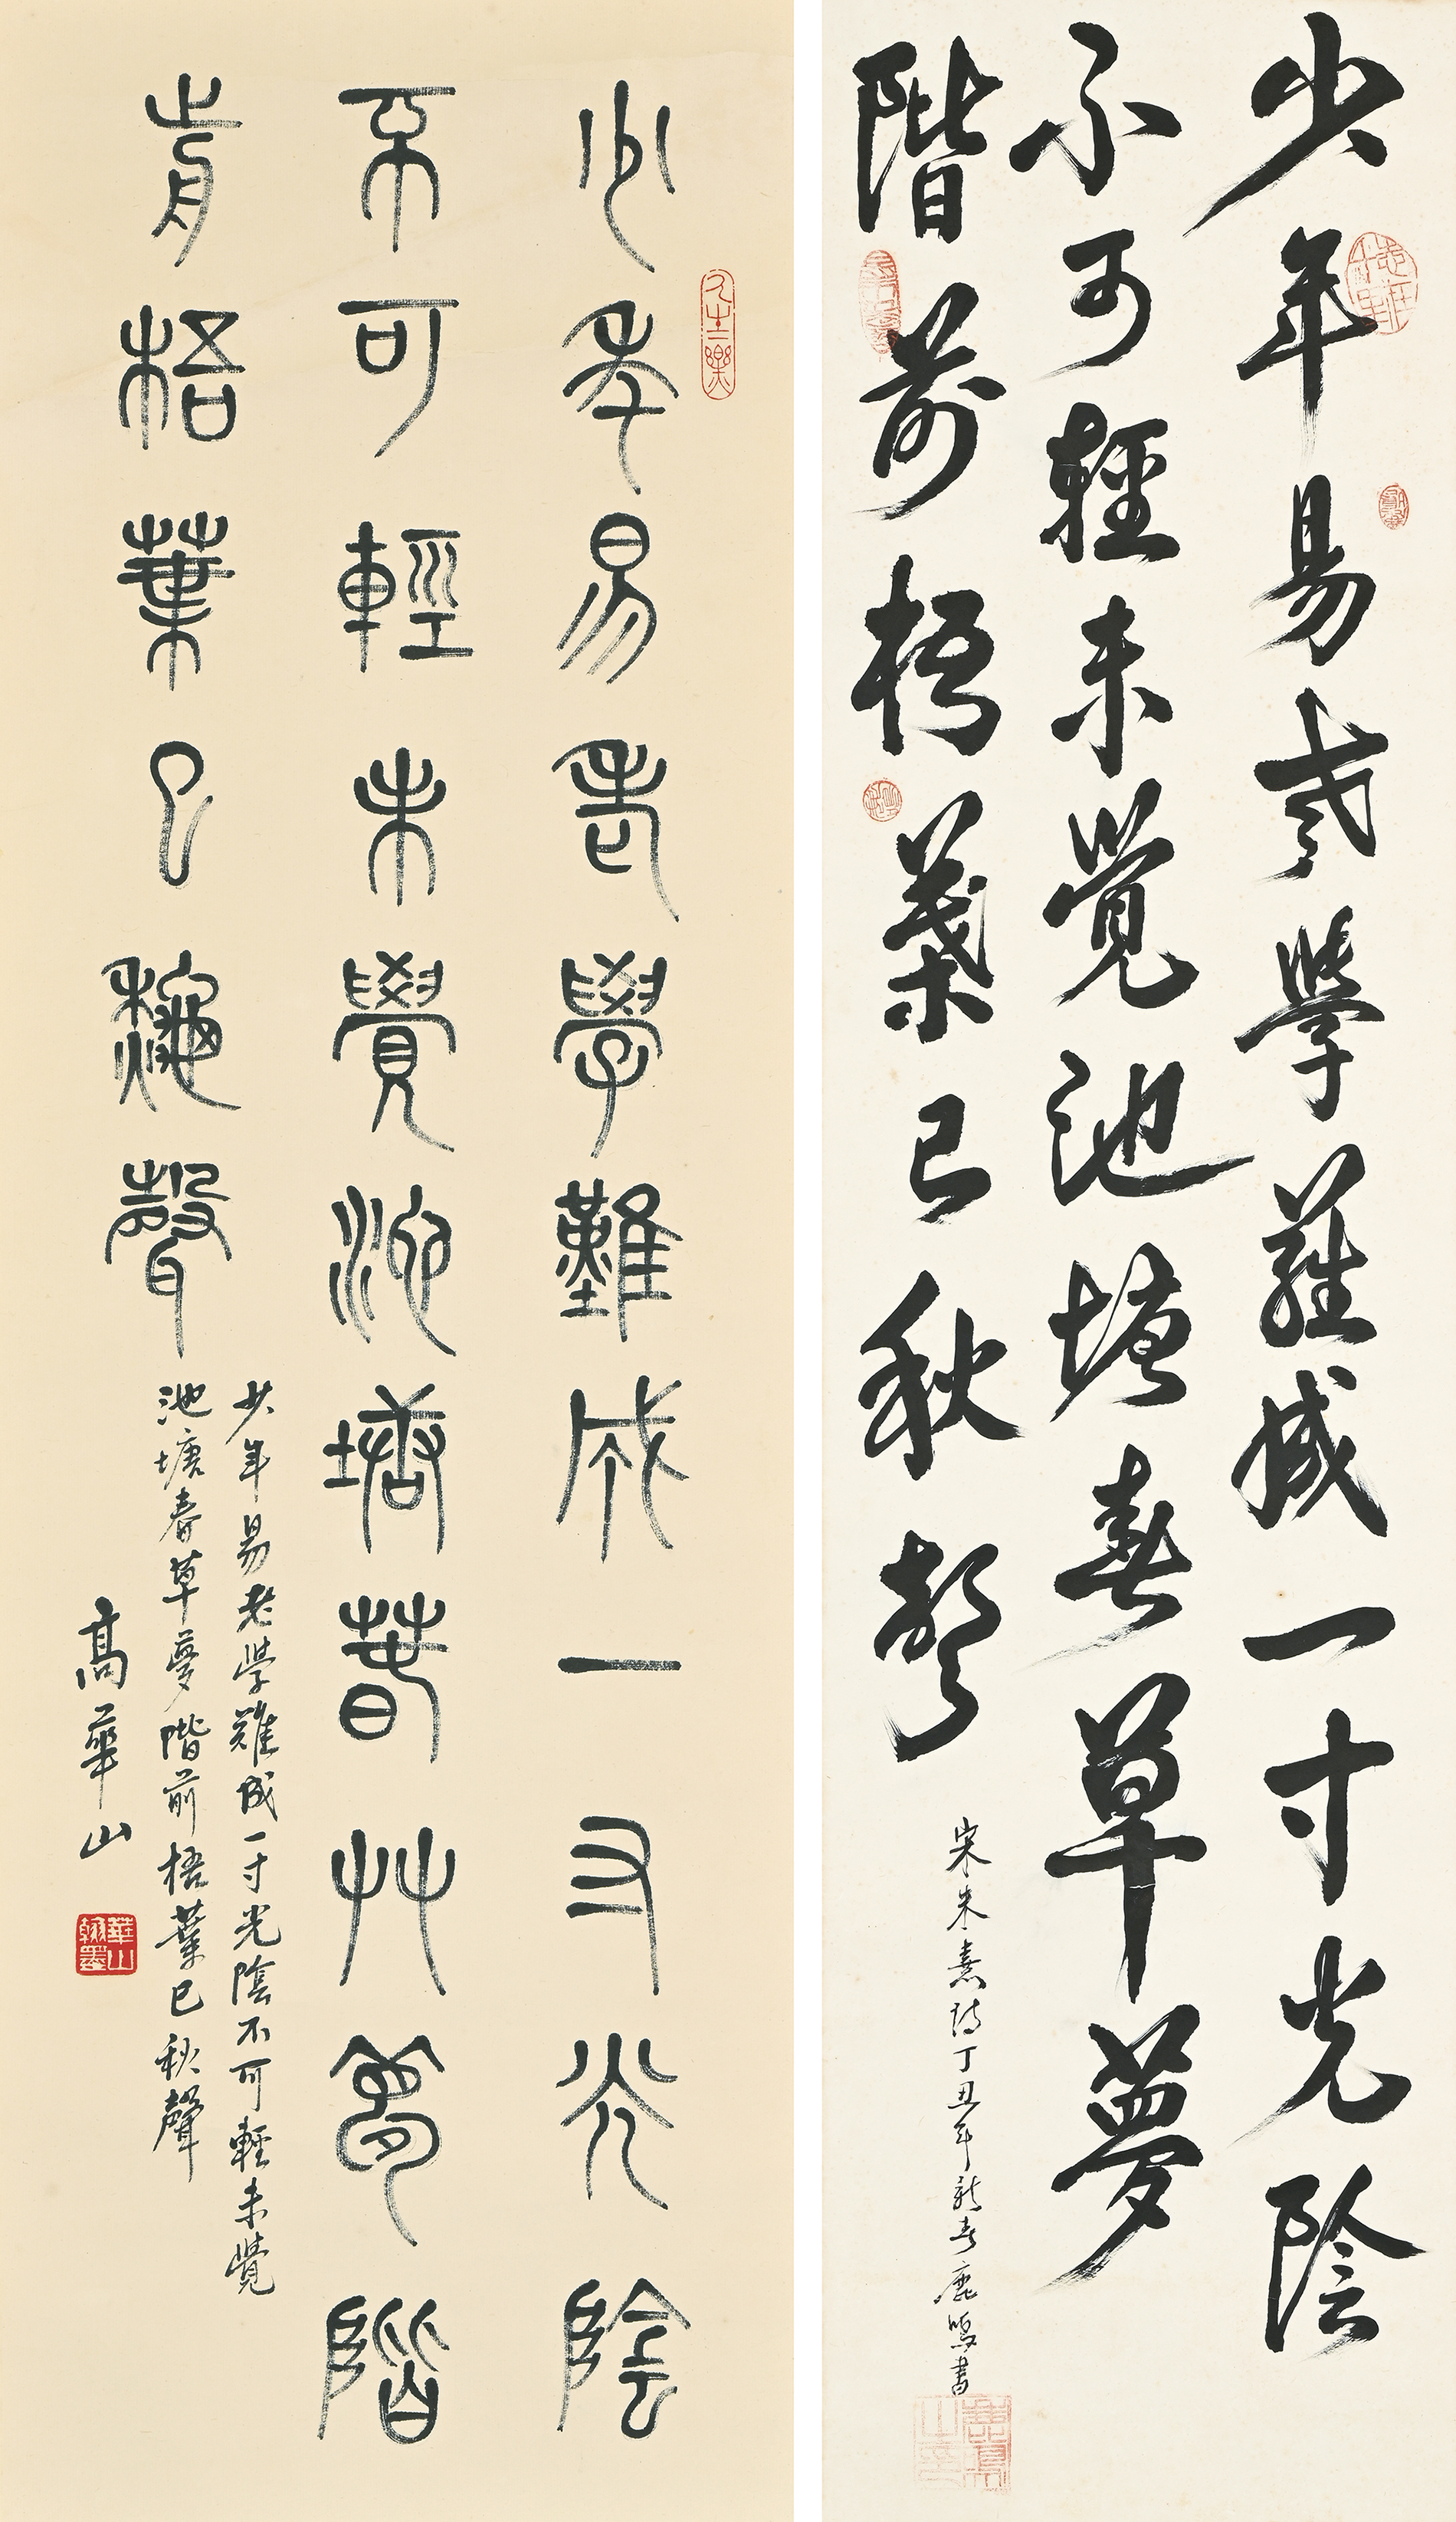 少年易老學難成一寸光陰
不可輕未覺池塘春草夢
階前梧葉已秋聲
宋朱熹詩丁丑年新春鹿鳴書
少年易老學難成一寸光陰
不可輕未覺池塘春艸夢階
前梧葉已秋聲
少年易老學難成一寸光陰不可輕未覺
池塘春草夢階前梧葉已秋聲
高華山
華山翰墨